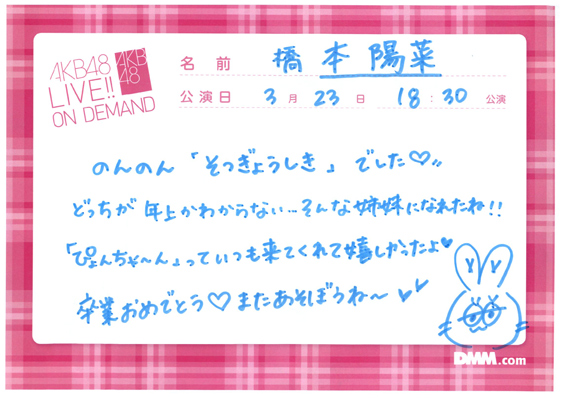 AKB48
LIVE!!
ON DEMAND
AKB
48
名前 橋本陽菜
公演日 3月23日 18:30公演
のんのん「そつぎょうしき」でした♡!!
どっちが年上かわからない…そんな姉妹になれたね!!
「ぴょんちゃ~ん」っていつも来てくれて嬉しかったよ♥
卒業おめでとう♡またあそぼうね~♥♥
DMM.com